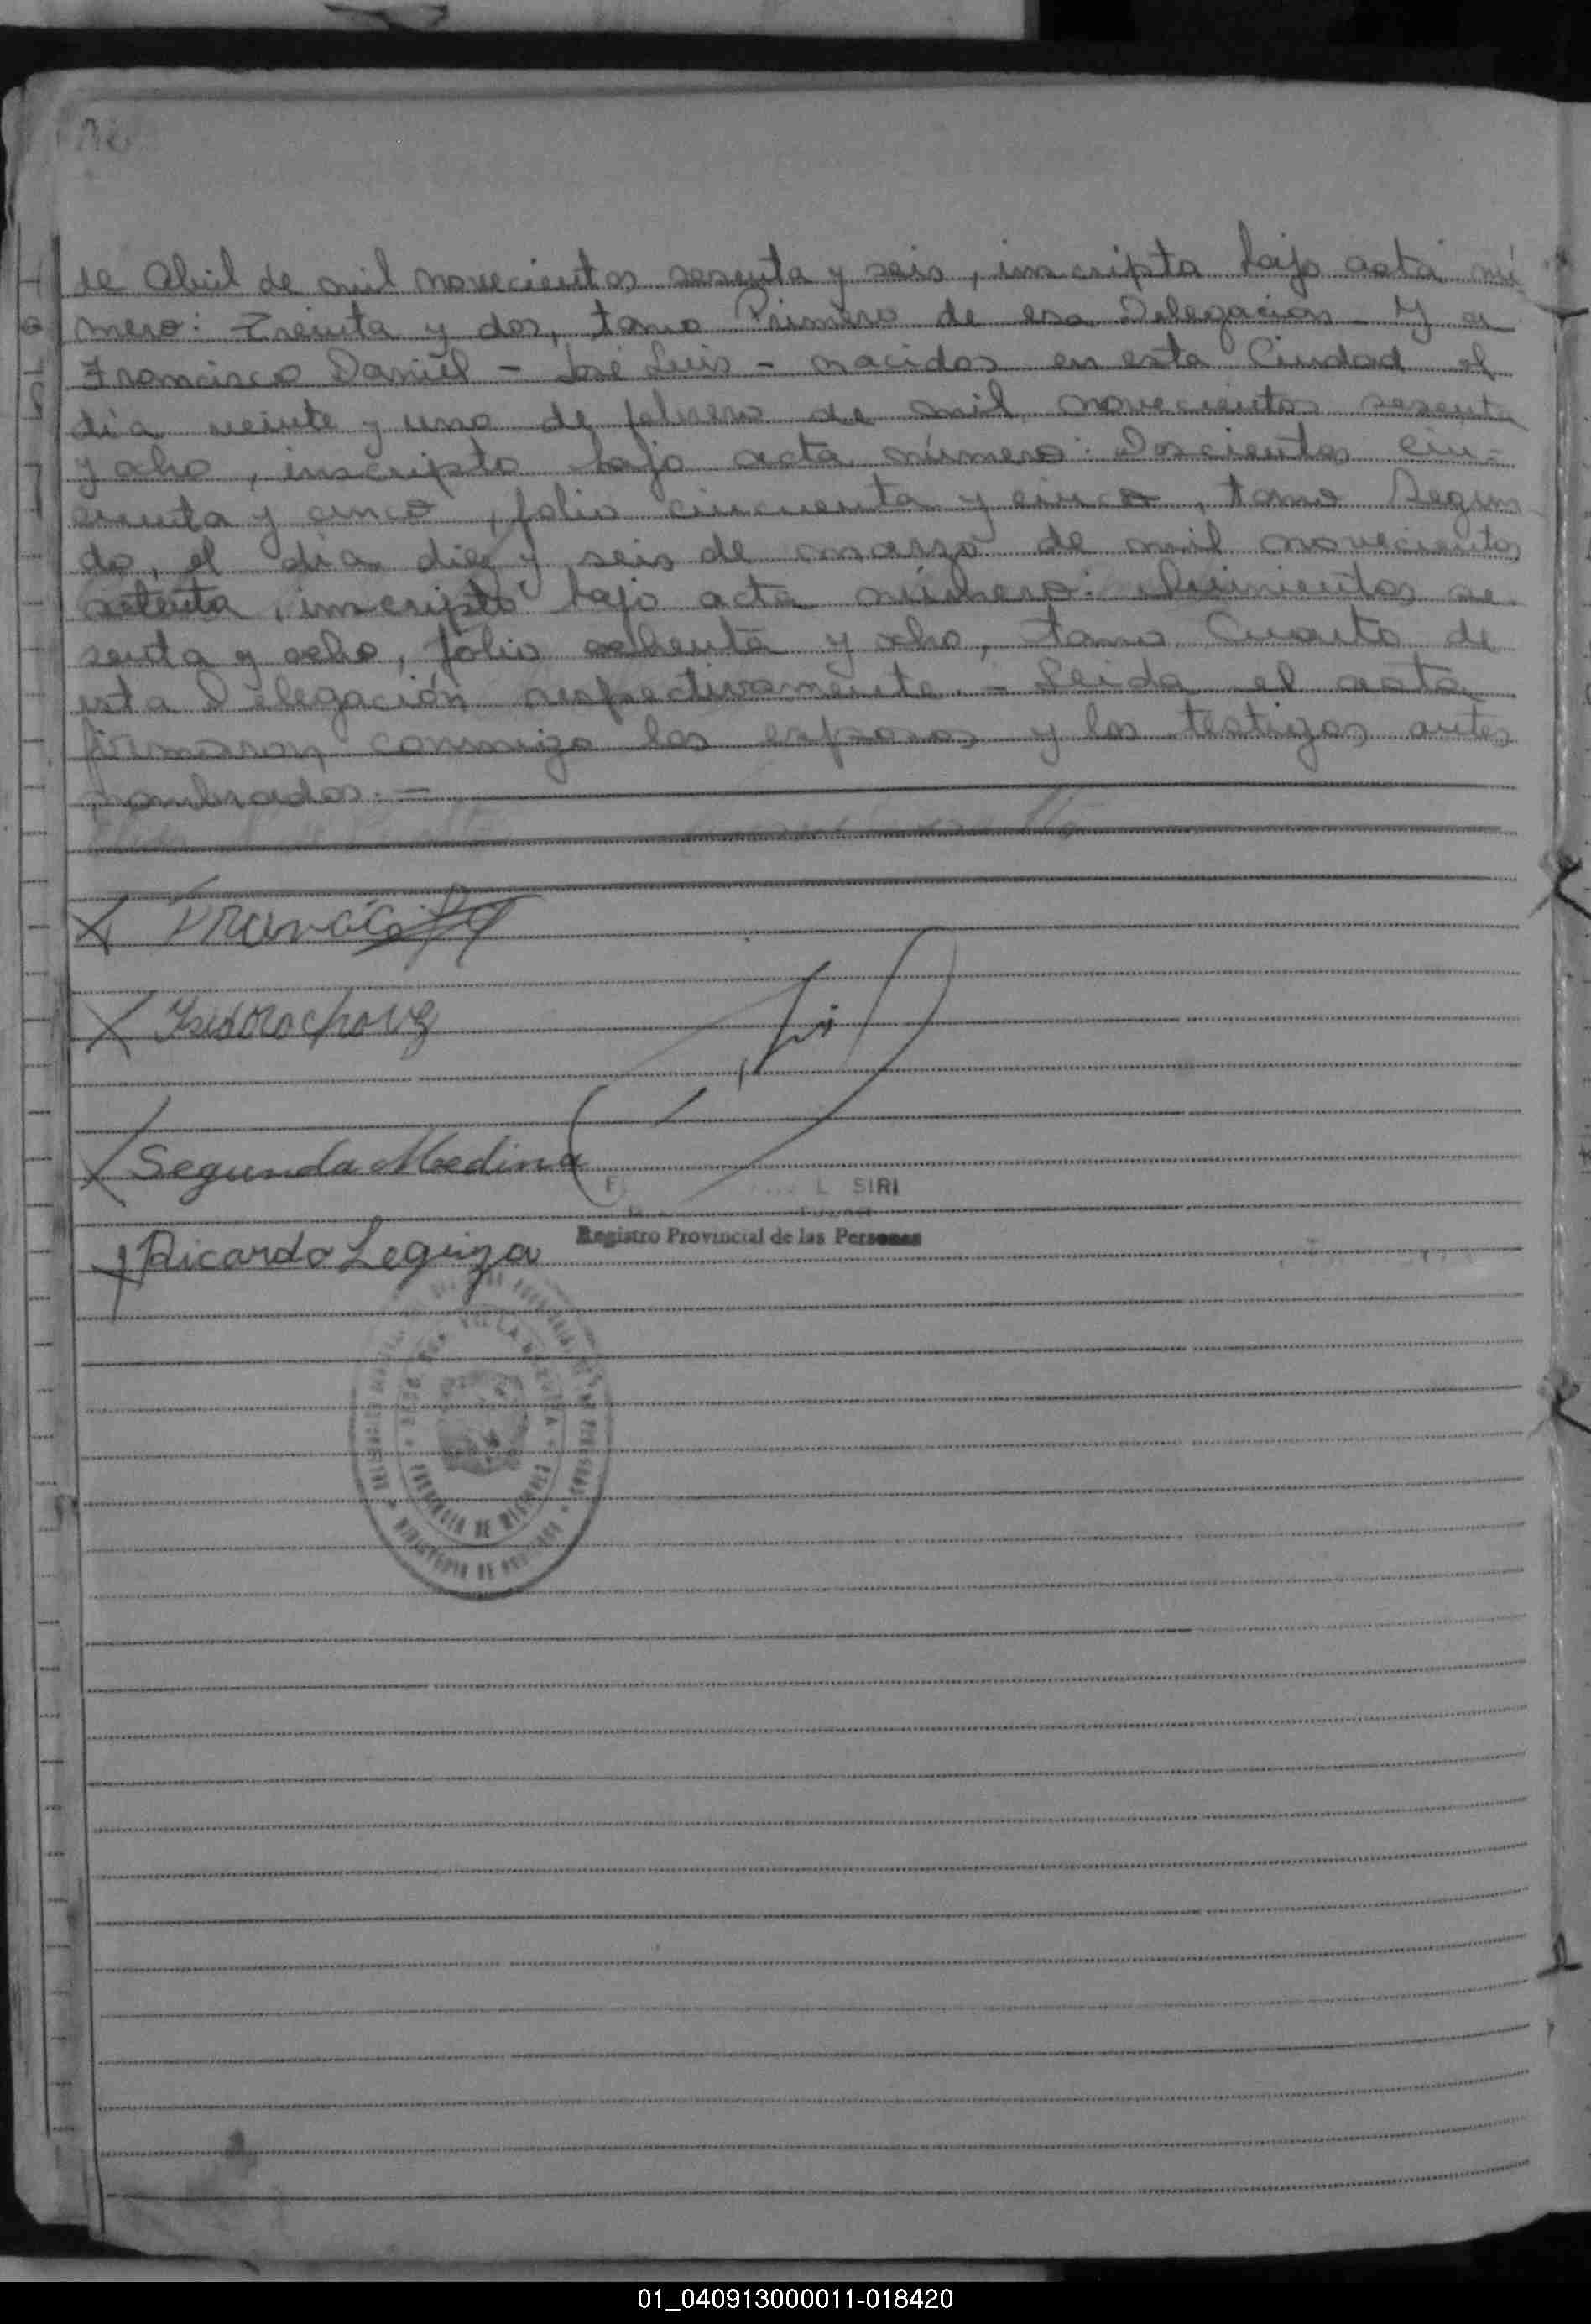 de Abril de mil novecientos sesenta y seis, inscripta bajo acta nú
mero: Treinta y dos, tomo Primero de esa Delegación - Y a
Francisco Daniel - José Luis - nacidos en esta Ciudad el
día veinte y uno de febrero de mil novecientos sesenta
y ocho, inscripto bajo acta número: Doscientos cin-
cuenta y cinco, folio cincuenta y cinco, tomo Segun-
do, el día diez y seis de marzo de mil novecientos
setenta, inscripto bajo acta número: Quinientos se
senta y ocho, folio ochenta y ocho, tomo Cuarto de
esta Delegación respectivamente. - Leida el acta
firmaron conmigo los esposos y los testigos antes
nombrados. -
X
X Isidora chavez
X Segunda Medina
L SIRI
Registro Provincial de las Personas
X Ricardo Legiza
01_040913000011-018420